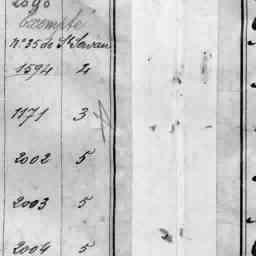 Exempté
N° 35 de St Servan
1594 4
1171 3
2002 5
2003 5
2004 5